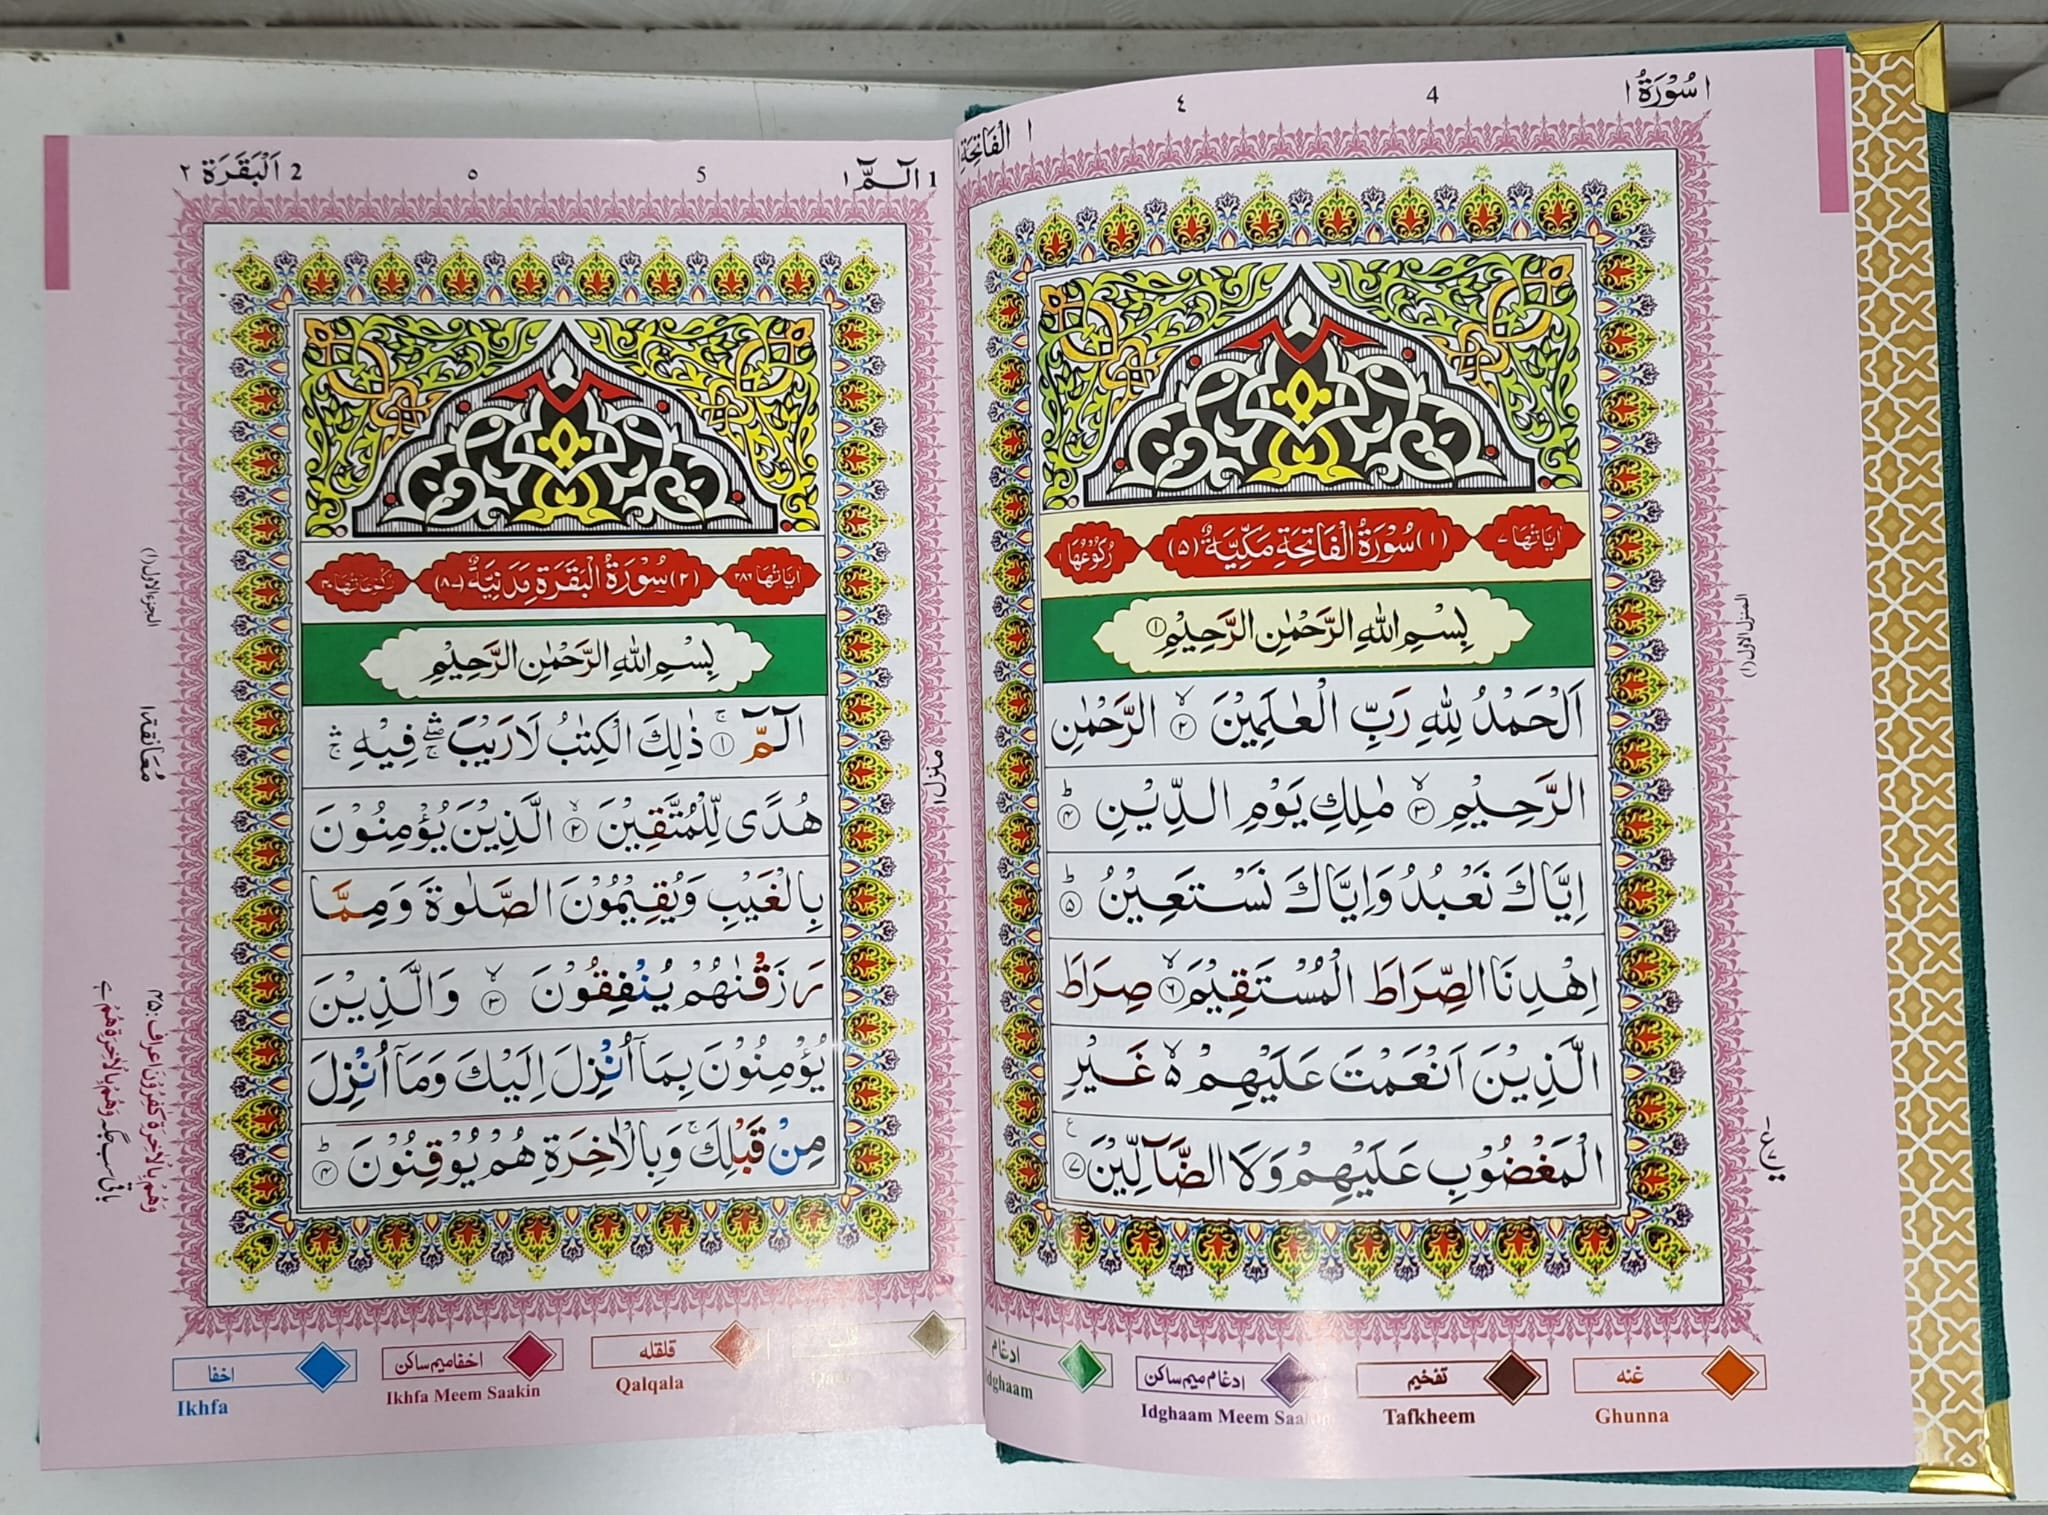 سُوْرَةُ ١
4
٤
اَلْفَاتِحَة ١
اٰيَاتُهَا ٧
(١) سُوْرَةُ الْفَاتِحَةِ مَكِّيَّةٌ (٥)
رُكُوْعُهَا ١
بِسْمِ اللّٰهِ الرَّحْمٰنِ الرَّحِيْمِ ١
اَلْحَمْدُ لِلّٰهِ رَبِّ الْعٰلَمِيْنَ ۙ ٢ الرَّحْمٰنِ
الرَّحِيْمِ ۙ ٣ مٰلِكِ يَوْمِ الدِّيْنِ ؕ ٤
اِيَّاكَ نَعْبُدُ وَاِيَّاكَ نَسْتَعِيْنُ ؕ ٥
اِهْدِنَا الصِّرَاطَ الْمُسْتَقِيْمَ ۙ ٦ صِرَاطَ
الَّذِيْنَ اَنْعَمْتَ عَلَيْهِمْ ۙ۬ ۵ غَيْرِ
الْمَغْضُوْبِ عَلَيْهِمْ وَلَا الضَّآلِّيْنَ ٧
المنزل الاول (١)
غنه
Ghunna
تفخيم
Tafkheem
ادغام ميم ساكن
Idghaam Meem Saakin
ادغام
Idghaam
الٓمّٓ ١ 1
5
٥
اَلْبَقَرَة ٢ 2
اٰيَاتُهَا ٢٨٦
(٢) سُوْرَةُ الْبَقَرَةِ مَدَنِيَّةٌ (٨٧)
رُكُوْعَاتُهَا ٤٠
بِسْمِ اللّٰهِ الرَّحْمٰنِ الرَّحِيْمِ
الٓمّٓ ۚ ١ ذٰلِكَ الْكِتٰبُ لَا رَيْبَ ۛۖۚ فِيْهِ ۛۚ
هُدًى لِّلْمُتَّقِيْنَ ۙ ٢ الَّذِيْنَ يُؤْمِنُوْنَ
بِالْغَيْبِ وَيُقِيْمُوْنَ الصَّلٰوةَ وَمِمَّا
رَزَقْنٰهُمْ يُنْفِقُوْنَ ۙ ٣ وَالَّذِيْنَ
يُؤْمِنُوْنَ بِمَآ اُنْزِلَ اِلَيْكَ وَمَآ اُنْزِلَ
مِنْ قَبْلِكَ ۚ وَبِالْاٰخِرَةِ هُمْ يُوْقِنُوْنَ ؕ ٤
منزل ١
الجزء الاول (١)
مُعَانقه ١
وَهُمْ بِالْاٰخِرَةِ كٰفِرُوْنَ اعراف: ٤٥
باقی سب جگہ وَهُمْ بِالْاٰخِرَةِ هُمْ ہے
قلقله
Qalqala
اخفا ميم ساكن
Ikhfa Meem Saakin
اخفا
Ikhfa